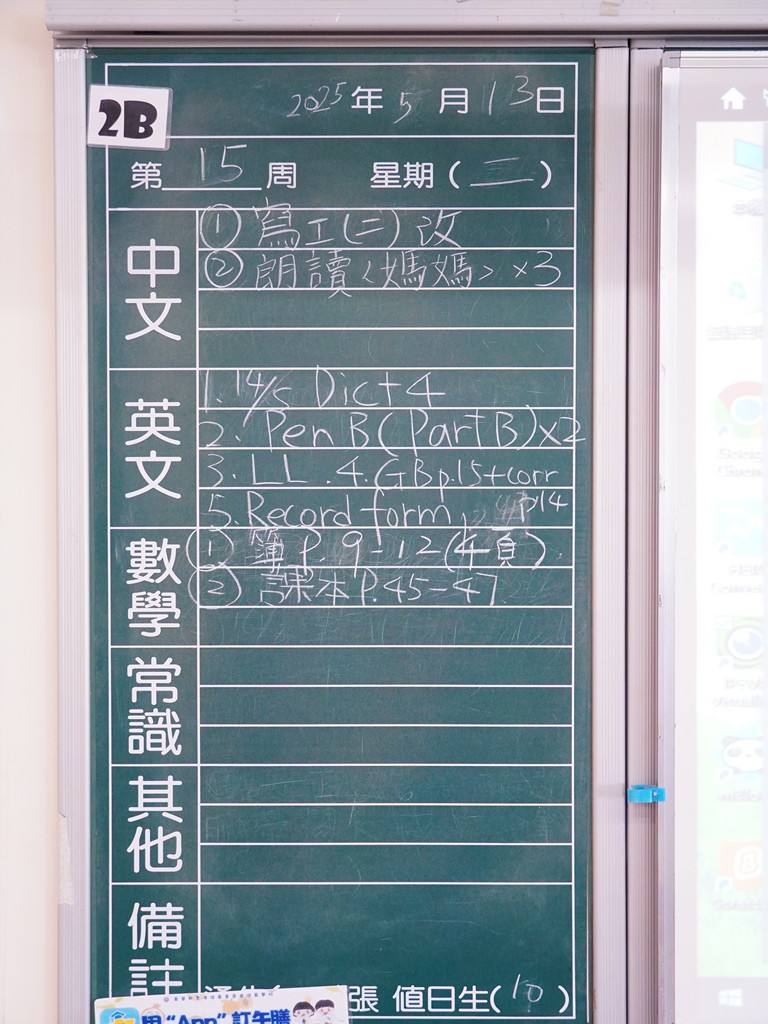 2B
2025年5月13日
第15周 星期(二)
中文
① 寫工(二)改
② 朗讀<媽媽>×3
英文
1. 14/5 Dict 4
2. Pen B (Part B)×2
3. LL. 4. GB p.15+corr
5. Record form, p14
數學
① 簿 P.9-12(4頁)
② 課本 P.45-47
常識
其他
備註
張 值日生(10)
與“App”訂午膳